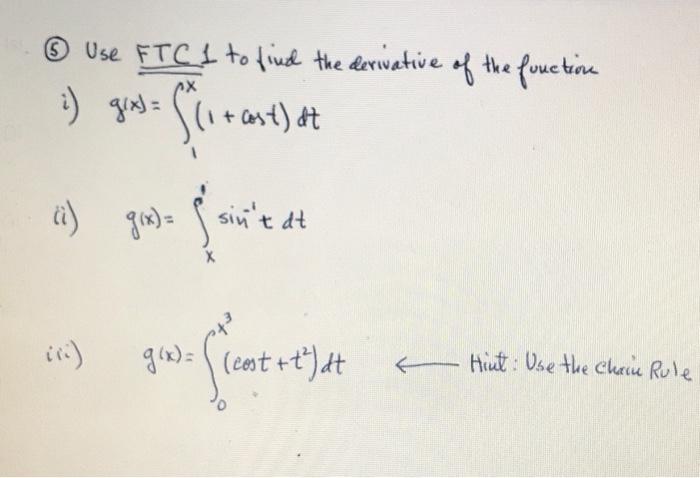 ⑤ Use FTC 1 to find the derivative of the function
i) g(x) = ∫₁ˣ (1 + cos t) dt
ii) g(x) = ∫ₓ¹ sin⁻¹t dt
iii) g(x) = ∫₀^x³ (cos t + t²) dt ← Hint : Use the Chain Rule